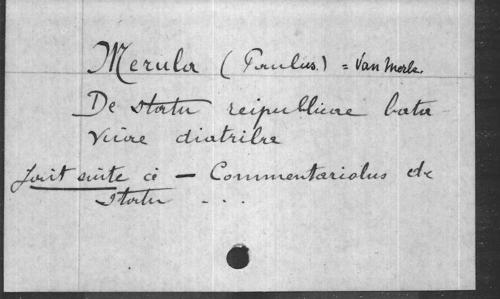 Merula (Paulus.) = Van Merle.
De statu reipublicae bata
vicae diatribae
fait suite à - Commentariolus de
statu ...